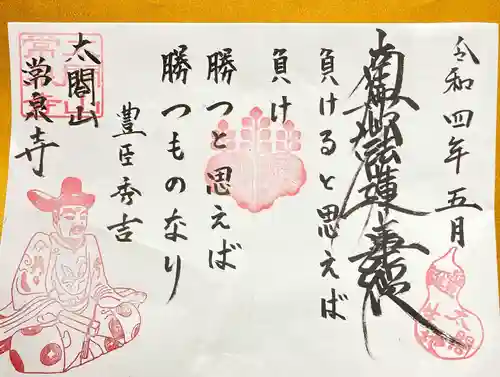 令和四年五月
南無妙法蓮華経
負けると思えば
負け
勝つと思えば
勝つものなり
豊臣秀吉
太閤山
常泉寺
太閤